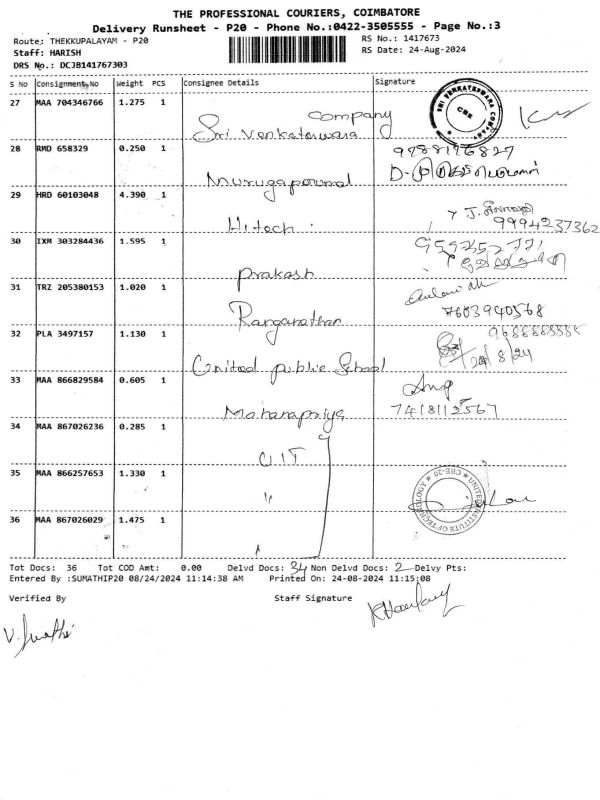 THE PROFESSIONAL COURIERS, COIMBATORE
Delivery Runsheet - P20 - Phone No.:0422-3505555 - Page No.:3
Route: THEKKUPALAYAM - P20
RS No.: 1417673
Staff: HARISH
RS Date: 24-Aug-2024
DRS No.: DCJB141767303
S No Consignment No Weight PCS Consignee Details Signature
27 MAA 704346766 1.275 1
Sri Venkateswara Company
SRI VENKATESWARA COMPANY
CBE
28 RMD 658329 0.250 1
Murugaperumal
29 HRD 60103048 4.390 1
Hitech
9994237362
30 IXM 303284436 1.595 1
Prakash
31 TRZ 205380153 1.020 1
Ranganathan
7603940568
32 PLA 3497157 1.130 1
United public School
24/8/24
33 MAA 866829584 0.605 1
7418112567
34 MAA 867026236 0.285 1
UIT
35 MAA 866257653 1.330 1
"
UNITED INSTITUTE OF TECHNOLOGY
CBE-20
36 MAA 867026029 1.475 1
"
Tot Docs: 36 Tot COD Amt: 0.00 Delvd Docs: 34 Non Delvd Docs: 2 Delvy Pts:
Entered By :SUMATHIP20 08/24/2024 11:14:38 AM Printed On: 24-08-2024 11:15:08
Verified By Staff Signature